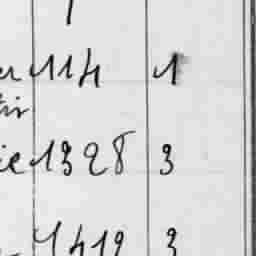 er 114 1
tin
ie 1328 3
1412 3